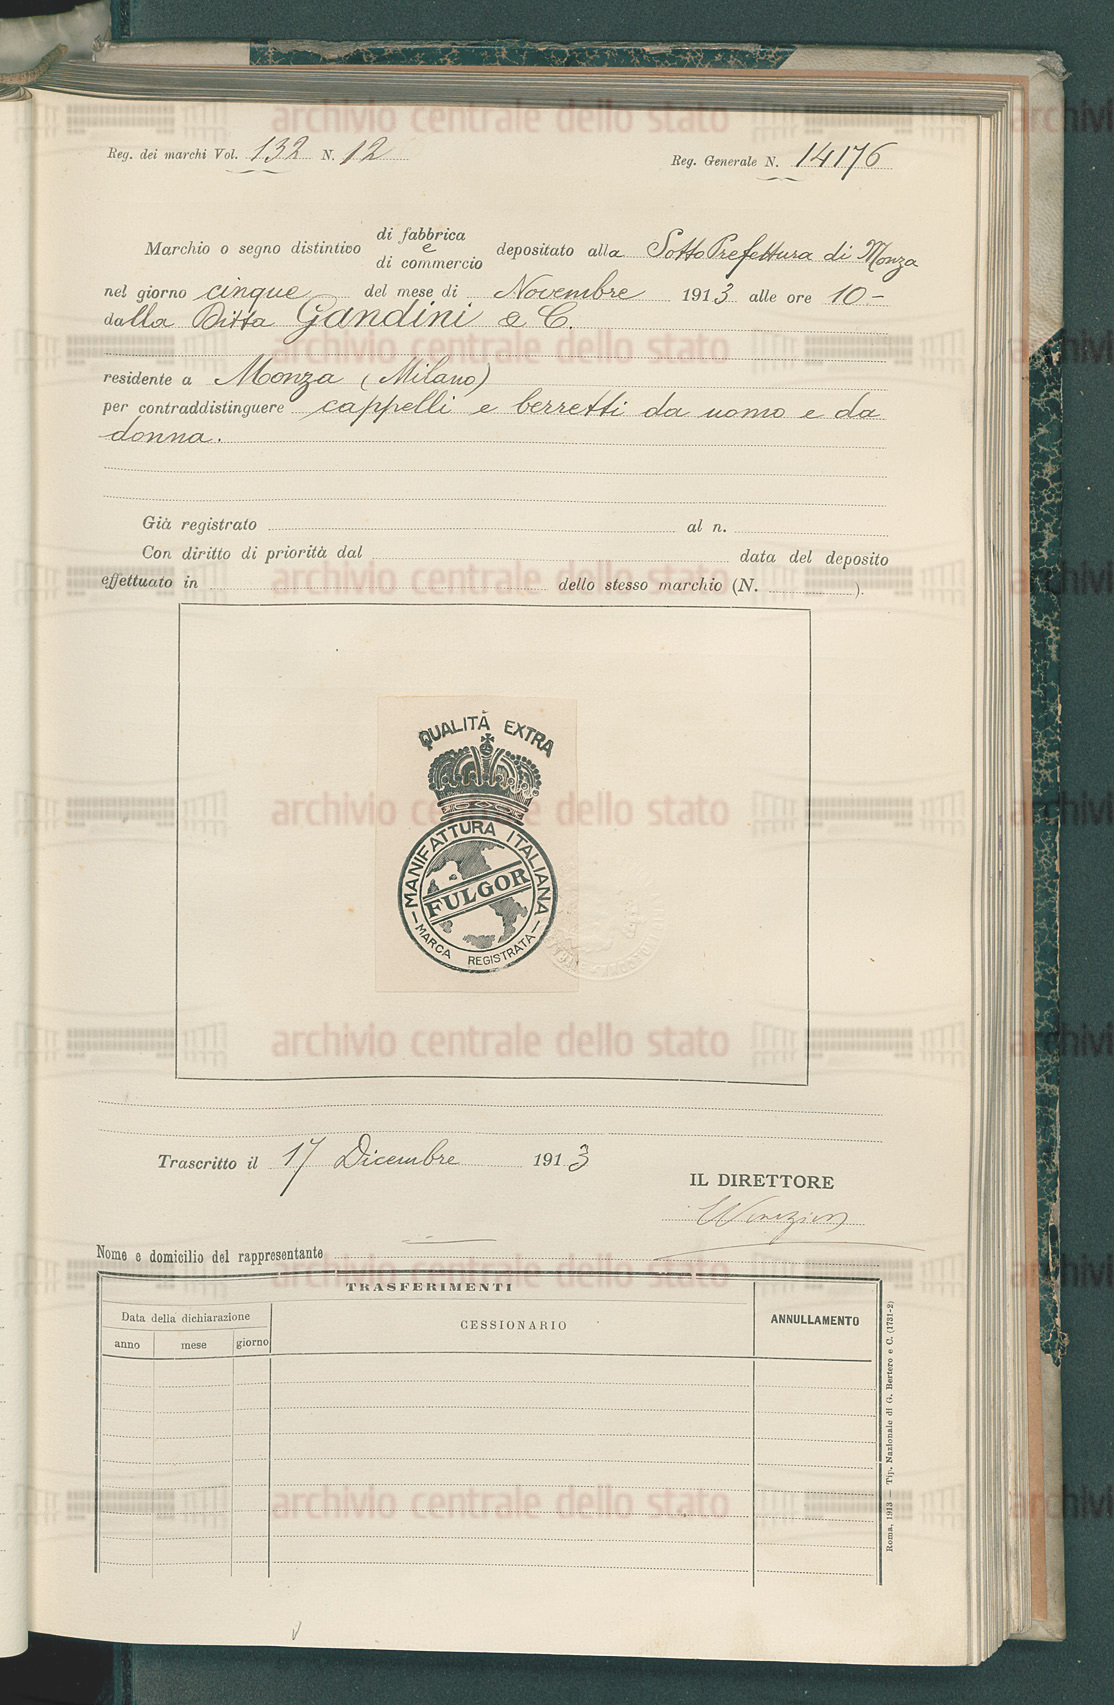 Reg. dei marchi Vol. 132 N. 12
Reg. Generale N. 14176
Marchio o segno distintivo di fabbrica e di commercio depositato alla Sotto Prefettura di Monza
nel giorno cinque del mese di Novembre 1913 alle ore 10 -
dalla Ditta Gandini & C.
residente a Monza (Milano)
per contraddistinguere cappelli e berretti da uomo e da
donna.
Già registrato al n.
Con diritto di priorità dal data del deposito
effettuato in dello stesso marchio (N. ).
QUALITÀ EXTRA
MANIFATTURA ITALIANA
FULGOR
MARCA REGISTRATA
Trascritto il 17 Dicembre 1913
IL DIRETTORE
Nome e domicilio del rappresentante
TRASFERIMENTI
Data della dichiarazione
CESSIONARIO
ANNULLAMENTO
anno mese giorno
Roma, 1913 — Tip. Nazionale di G. Bertero e C. (1731-2)
archivio centrale dello stato
archivio centrale dello stato
archivio centrale dello stato
archivio centrale dello stato
archivio centrale dello stato
archivio centrale dello stato
archivio centrale dello stato